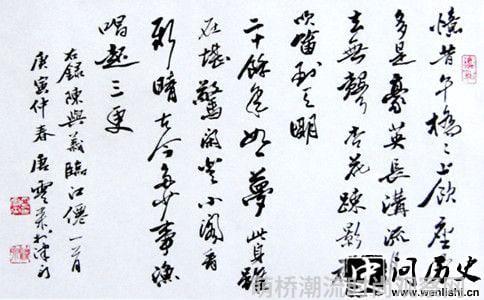 憶昔午橋〻上飲座
多是豪英長溝流
去無聲杏花踈影
吹笛到天明
二十餘年如夢此身雖
在堪驚閑登小閣看
新晴古今多少事漁
唱起三更
右錄陳與義臨江僊一首
庚寅仲春唐雲來於津門
中问历史
www.wenlishi.cn